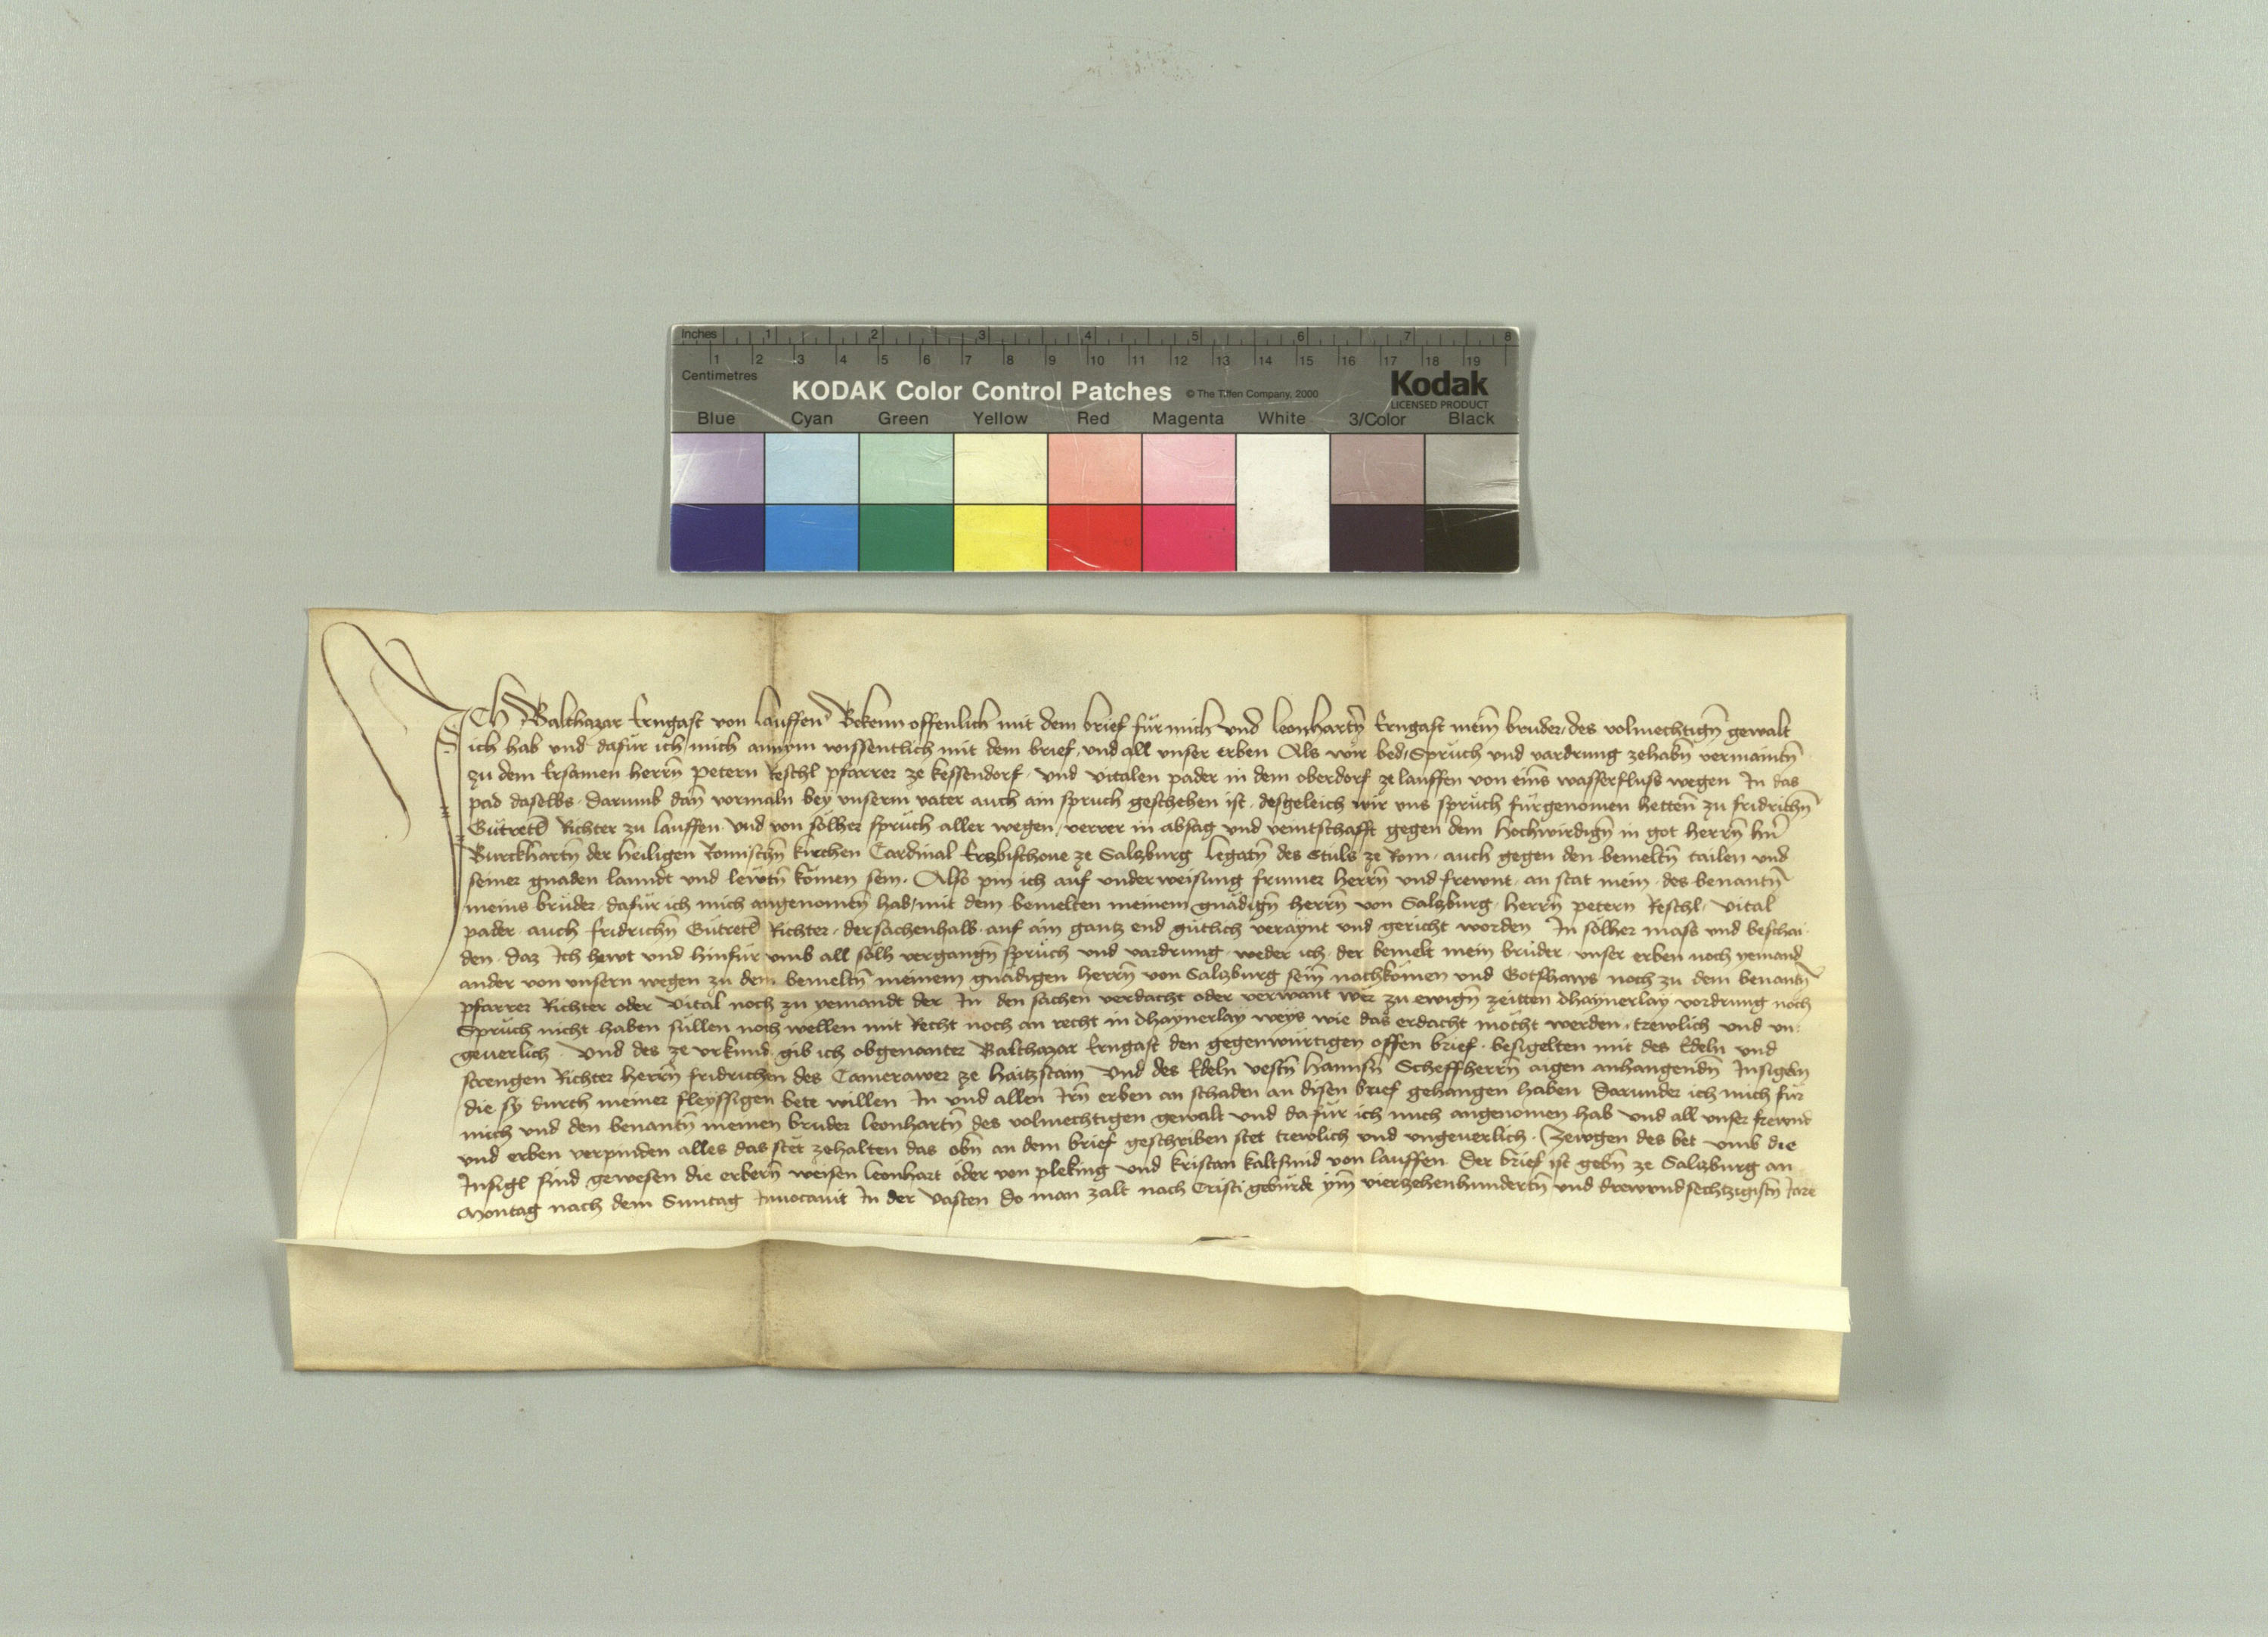 Inches 1 2 3 4 5 6 7 8
1 2 3 4 5 6 7 8 9 10 11 12 13 14 15 16 17 18 19
Centimetres
KODAK Color Control Patches © The Tiffen Company, 2000 Kodak
LICENSED PRODUCT
Blue Cyan Green Yellow Red Magenta White 3/Color Black
Ich Balthazar Erngast von Lauffen Bekenn offenlich mit dem brief für mich und Leonhartn̄ Erngast mein̄ bruder, des volmechtign̄ gewalt
ich hab und dafür ich mich annym wissentlich mit dem brief, und all unser erben Als wir bed, Sprüch und vardrung zehabn̄ vermaintn̄
zu dem Ersamen herrn̄ Petern Reschl pfarrer ze kessendorf, und vitalen pader in dem oberdorf ze lauffen von eins wasserfluss wegen In das
pad daselbs, darumb dan̄ vormaln bey unserm vater auch ain spruch geschehen ist, desgeleich wir uns sprüch fürgenomen hetten̄ zu fridrichn̄
Gütretñ Richter zu lauffen, Und von sölher sprüch aller wegen, verrer in absag und veintschafft gegen dem hochwirdign̄ in got herrn̄ hn̄
Burckhartn̄ der heiligen Romischn̄ kirchen Cardinal Erzbischoue ze Salzburg Legatn̄ des Stuls ze Rom, auch gegen den bemeltn̄ tailen und
seiner gnaden lanndt und lewtn̄ kömen sein. Also pin ich auf underweisung frumer herrn̄ und frewnt, an stat mein, des benantn̄
meins bruder, dafür ich mich angenomen̄ hab, mit dem bemelten meinem gnädign̄ herrn̄ von Salzburg, herrn̄ petern Reschl, Vital
pader, auch fridrichn̄ Gütretñ Richter, dersachenhalb, auf ain gantz end gütlich veraynt und gericht worden In sölher mass und beschai-
den, daz Ich hewt und hinfür umb all sölh vergangn̄ sprüch und vardrung, weder ich, der bemelt mein bruder, unser erben noch yemand
ander von unsern wegen zu dem bemeltn̄ meinem gnädigen herrn̄ von Salzburg sein̄ nachkömen und Gotshaws noch zu dem benantn̄
pfarrer Richter oder Vital noch zu yemandt der In den sachen verdacht oder verwant wer zu ewign̄ zeitten dhaynerlay vordrung noch
Sprüch nicht haben süllen noch wellen mit Recht noch an recht in dhaynerlay weys wie das erdacht möcht werden, trewlich und un-
geuerlich. Und des ze urkund gib ich obgenanter Balthazar Erngast den gegenwürtigen offen brief, besigelten mit des Edeln und
strengen Ritter herrn̄ fridrichen des Camerawer ze haitzstain Und des Edeln vestn̄ hannsn̄ Scheffherrn̄ aigen anhangendn̄ Insigeln
die sy durch meiner fleyssigen bete willen In und allen Irn̄ erben an schaden an disen brief gehangen haben Darunder ich mich für
mich und den benantn̄ meinen bruder leonhartn̄ des volmechtigen gewalt und dafür ich mich angenomen hab und all unser frewnd
und erben verpinden alles das stet zehalten das obn̄ an dem brief geschriben stet trewlich und ungeuerlich. Zewgen des bet umb die
Insigl sind gewesen die erbern̄ weisen leonhart öder von pleking und kristan kaltsmid von lauffen Der brief ist gebn̄ ze Salzburg an
Montag nach dem Suntag Inuocauit In der Vasten Do man zalt nach Cristi gebürde ym̄ vierzehenhundertn̄ und drewundsechtzigistn̄ Jare